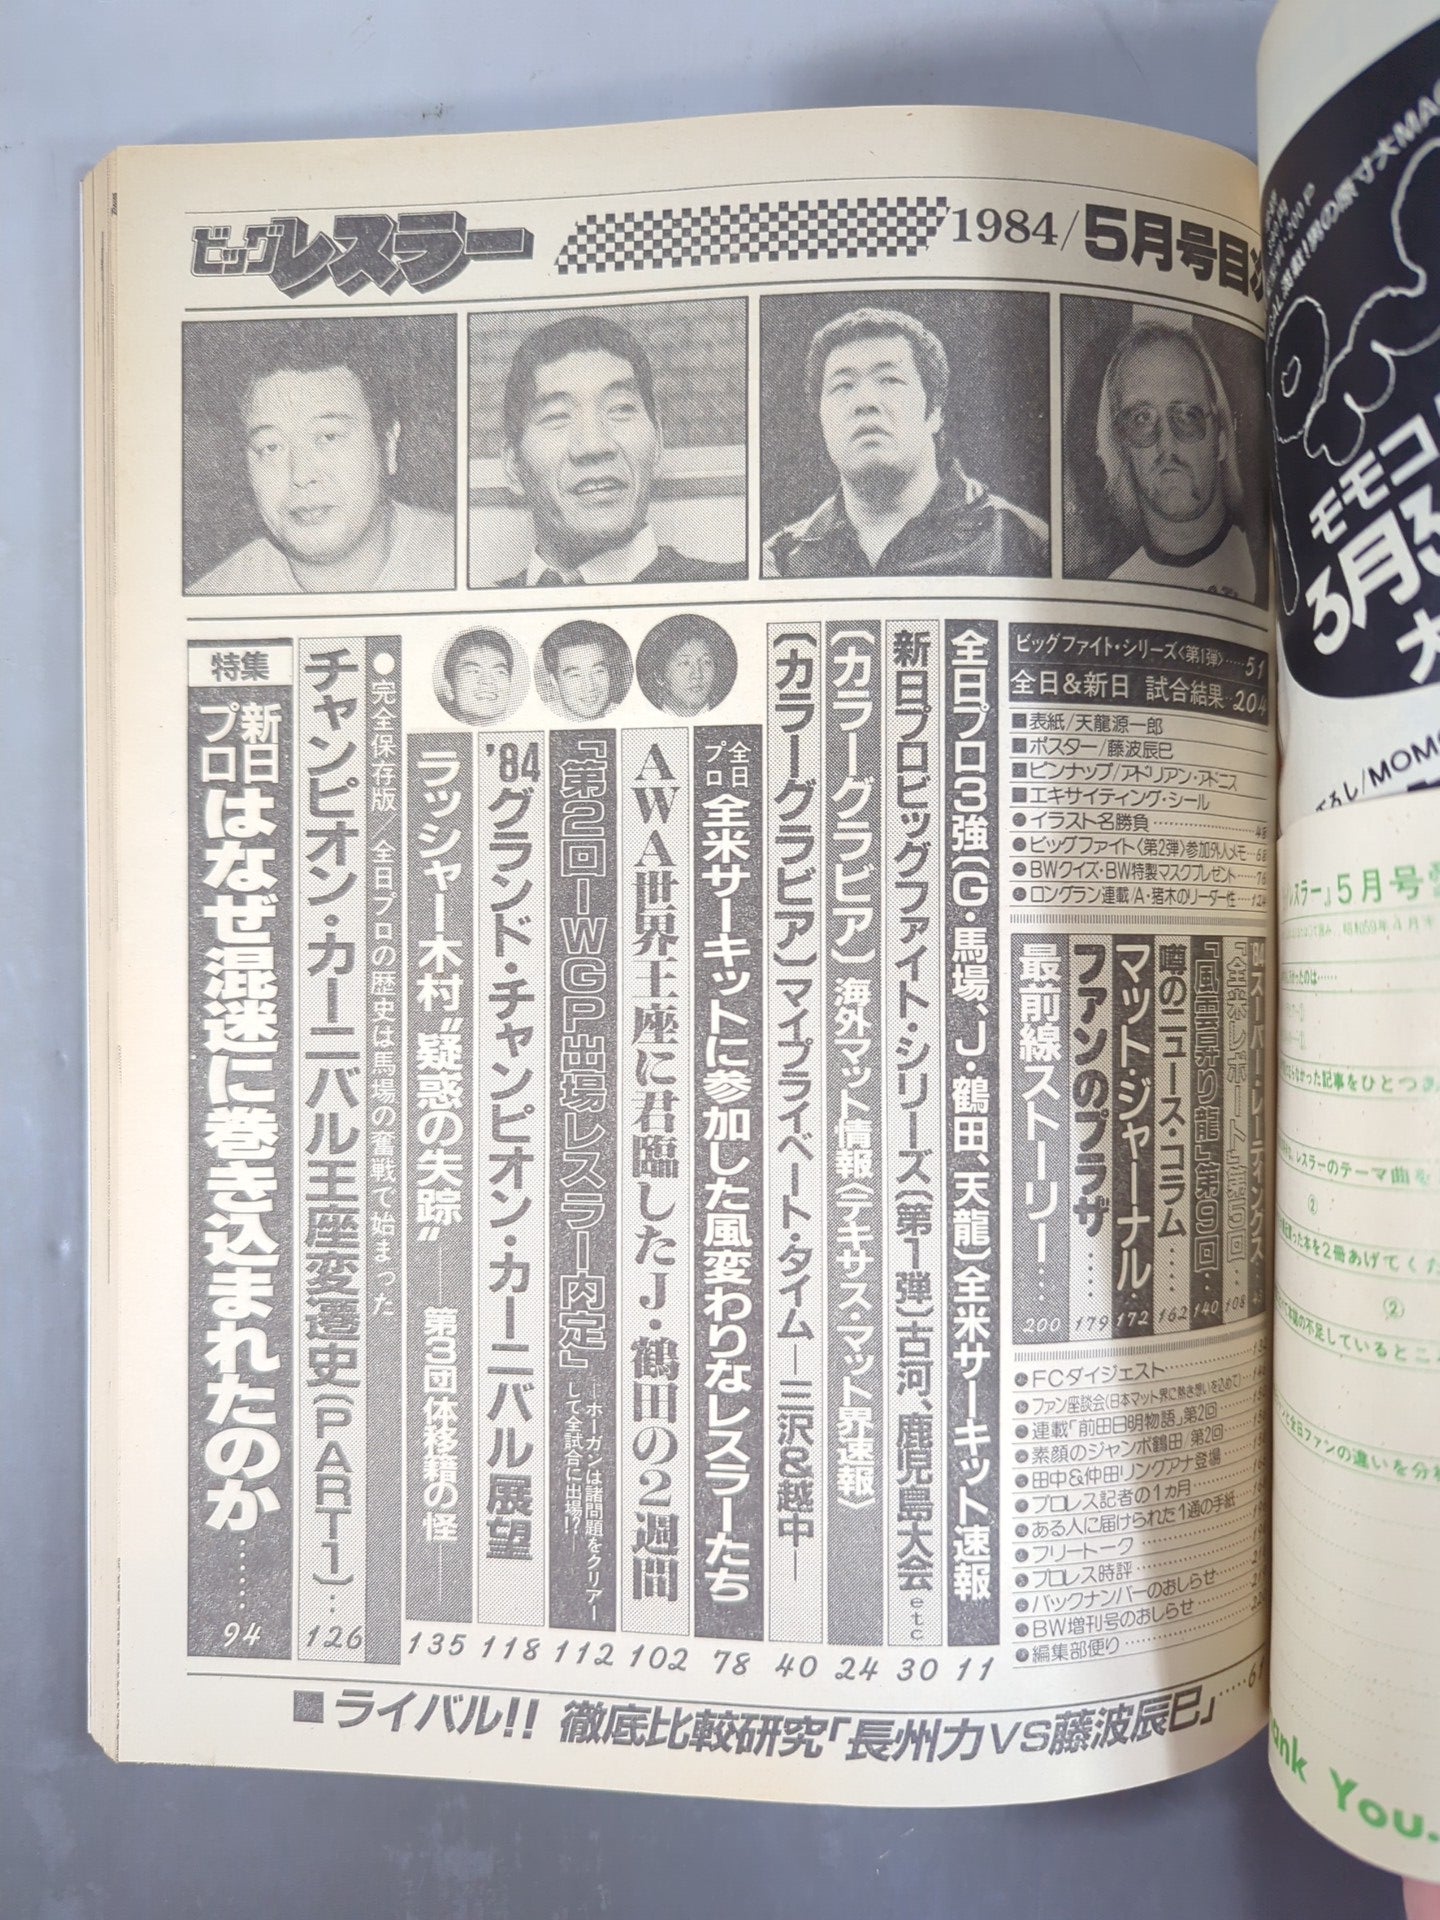 ビッグレスラー
1984/5月号目次
ビッグファイト・シリーズ〈第1弾〉……51
全日&新日 試合結果‥204
■表紙/天龍源一郎
■ポスター/藤波辰巳
■ピンナップ/アドリアン・アドニス
■エキサイティング・シール
●イラスト名勝負
●ビッグファイト〈第2弾〉参加外人メモ
●BWクイズ・BW特製マスクプレゼント
●ロングラン連載/A・猪木のリーダー性
'84スーパー・レーティングス
『全米レポート』第5回…108
『風雲昇り龍』第9回…140
噂のニュース・コラム……162
マット・ジャーナル…172
ファンのプラザ……179
最前線ストーリー…200
FCダイジェスト
ファン座談会(日本マット界に熱き想いを込めて)
連載「前田日明物語」第2回
素顔のジャンボ鶴田/第2回
田中&仲田リングアナ登場
プロレス記者の1カ月
ある人に届けられた1通の手紙
フリートーク
プロレス時評
バックナンバーのおしらせ
BW増刊号のおしらせ
編集部便り
全日プロ3強(G・馬場、J・鶴田、天龍)全米サーキット速報 11
新日プロビッグファイト・シリーズ(第1弾)古河、鹿児島大会etc 30
〔カラーグラビア〕海外マット情報〈テキサス・マット界速報〉 24
〔カラーグラビア〕マイプライベート・タイム―三沢&越中― 40
全日プロ 全米サーキットに参加した風変わりなレスラーたち 78
AWA世界王座に君臨したJ・鶴田の2週間 102
『第2回IWGP出場レスラー内定』
―ホーガンは諸問題をクリアー
して全試合に出場?!― 112
'84グランド・チャンピオン・カーニバル展望 118
ラッシャー木村“疑惑の失踪”――第3団体移籍の怪―― 135
●完全保存版/全日プロの歴史は馬場の奮戦で始まった
チャンピオン・カーニバル王座変遷史(PART1)…126
特集
新日プロはなぜ混迷に巻き込まれたのか………94
■ライバル!! 徹底比較研究「長州力VS藤波辰巳」
モモコ
MOMO
レスラー』5月号
昭和59年4月
レスラーのテーマ曲を
②
本を2冊あげてくだ
②
本誌の不足しているところ
全日ファンの違いを分
Thank You.